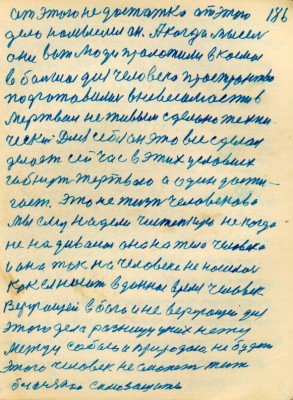 от этого недостатка от этого 186
дело помыслил он. А когда мысел
они вот люди проложили в космос
в больша для человека пространство
подготовилися в невесомость в
мертвом не живым сделано техни
ческий Для себя он это все сделал
делает сейчас в этих условиях
гибнут жертвою а один дости-
гает. Это не жизнь человекова
мы ему надели чистотую не когда
не надивало она на тило человека
и она так на человеке не носилась
как ее носит в данное время человек
Верующей в бога и не верующий для
этого дела разницу у них нету
Между собою и природою не будет
этого человек не сможет жить
без всякого самозащиты